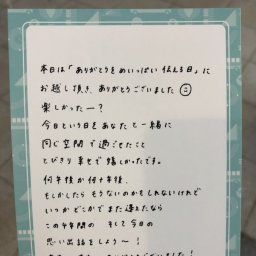 本日は「ありがとうをめいっぱい伝える日」に
お越し頂き、ありがとうございました
楽しかったー？
今日という日をあなたと一緒に
同じ空間で過ごせたこと
とびきり幸せで嬉しかったです。
何年後か何十年後
もしかしたらもうないのかもしれないけれど
いつかどこかでまた逢えたなら
この4年間の そして今日の
思い出話をしよう〜！